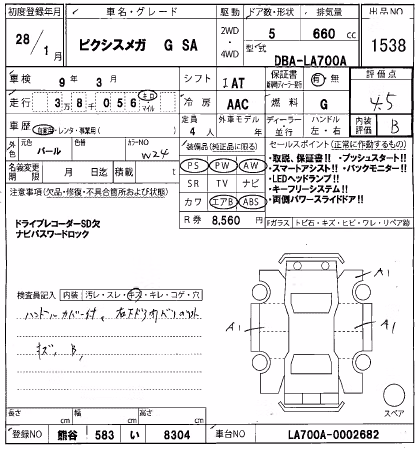 初度登録年月 車名・グレード 駆動 ドア数・形状 排気量 出品NO
28/1月 ピクシスメガ G SA 2WD・4WD 5 660 cc 1538
型式 DBA-LA700A
車検 9年 3月 シフト IAT 保証書 有・無 評価点
走行 3万8千056 キロ マイル 冷房 AAC 燃料 G 4.5
車歴 自家用・レンタ・事業用( ) 定員 4人 外車モデル 年 ディーラー・並行 ハンドル 左・右 内装評価 B
外色 元色 パール カラーNO W24
装備品(純正品に限る) セールスポイント(正常に作動するもの)
PS PW AW
SR TV ナビ
カワ エアB ABS
R券 8,560円
・取説、保証書!!・プッシュスタート!!
・スマートアシスト!!・バックモニター!!
・LEDヘッドランプ!!
・キーフリーシステム!!
・両側パワースライドドア!!
名義変更期限 月 日迄 積載 t
注意事項(欠品・修復・不具合箇所および状態)
Fガラス トビ石・キズ・ヒビ・ワレ・リペア跡
ドライブレコーダーSD欠
ナビパスワードロック
A1
A1
A1
検査員記入 内装 汚レ・スレ・キズ・キレ・コゲ・穴
ハンドルカバー付
キズ、B、
スペア
長さ cm 幅 cm 高さ cm
登録NO 熊谷 583 い 8304 車台NO LA700A-0002682